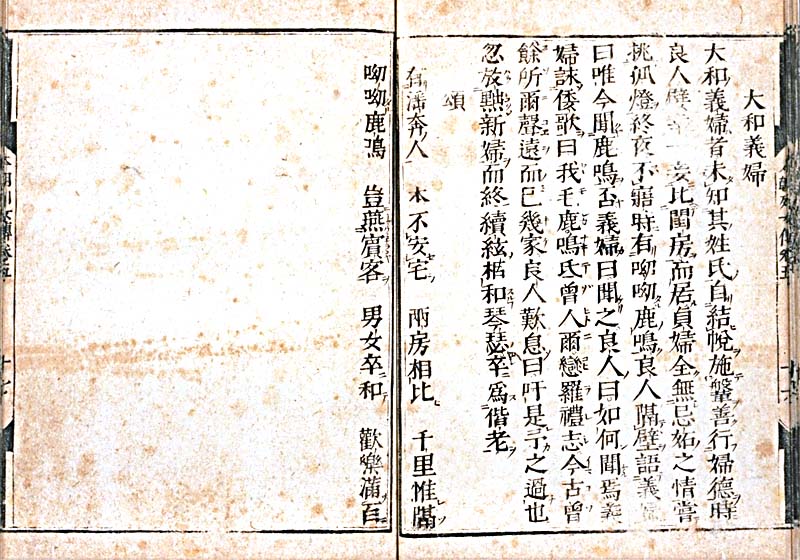 大和義婦
大和義婦者未知其姓氏自結帨施鞶善行婦德時
良人 妾比閨房而居貞婦全無忌妬之情嘗
挑孤燈終夜不寤時有呦呦鹿鳴良人隔壁語義
曰唯今聞鹿鳴否義婦曰聞之良人曰如何聞焉義
婦詠倭歌曰我毛鹿鳴氏曾人爾戀羅禮志今古曾
餘所爾聲遠而已幾家良人歎息曰吁是予之過也
忽放㷀新婦而終續絃楷和琴瑟卒爲偕老
頌
奔人 木不安宅 兩房相比 千里惟隔
呦呦鹿鳴 豈燕賓客 男女卒和 歡樂滿百